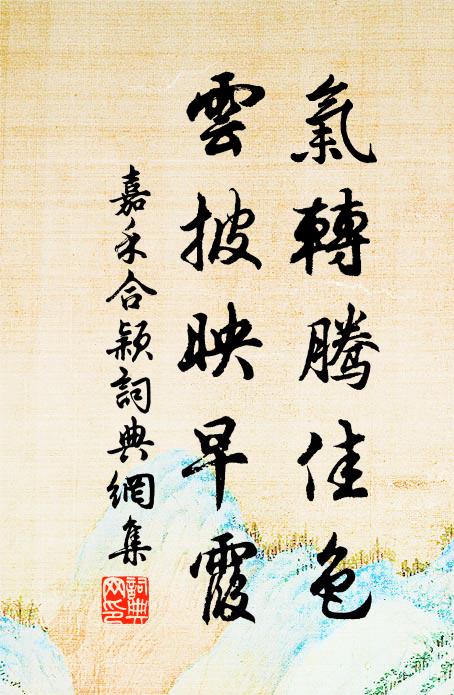 氣轉騰佳色
雲披映早霞
嘉禾合穎詞典網集